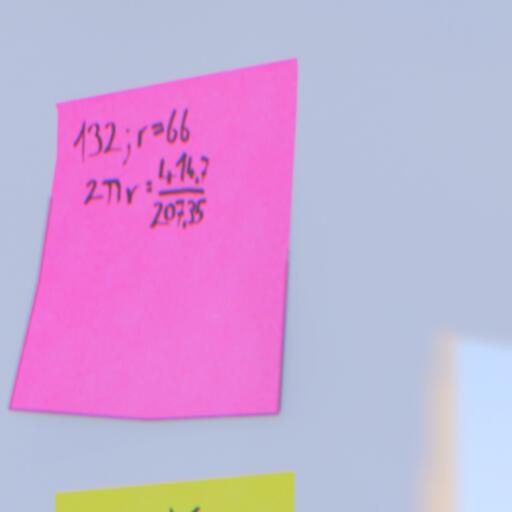 132; r=66
2πr = 414,7
207,35